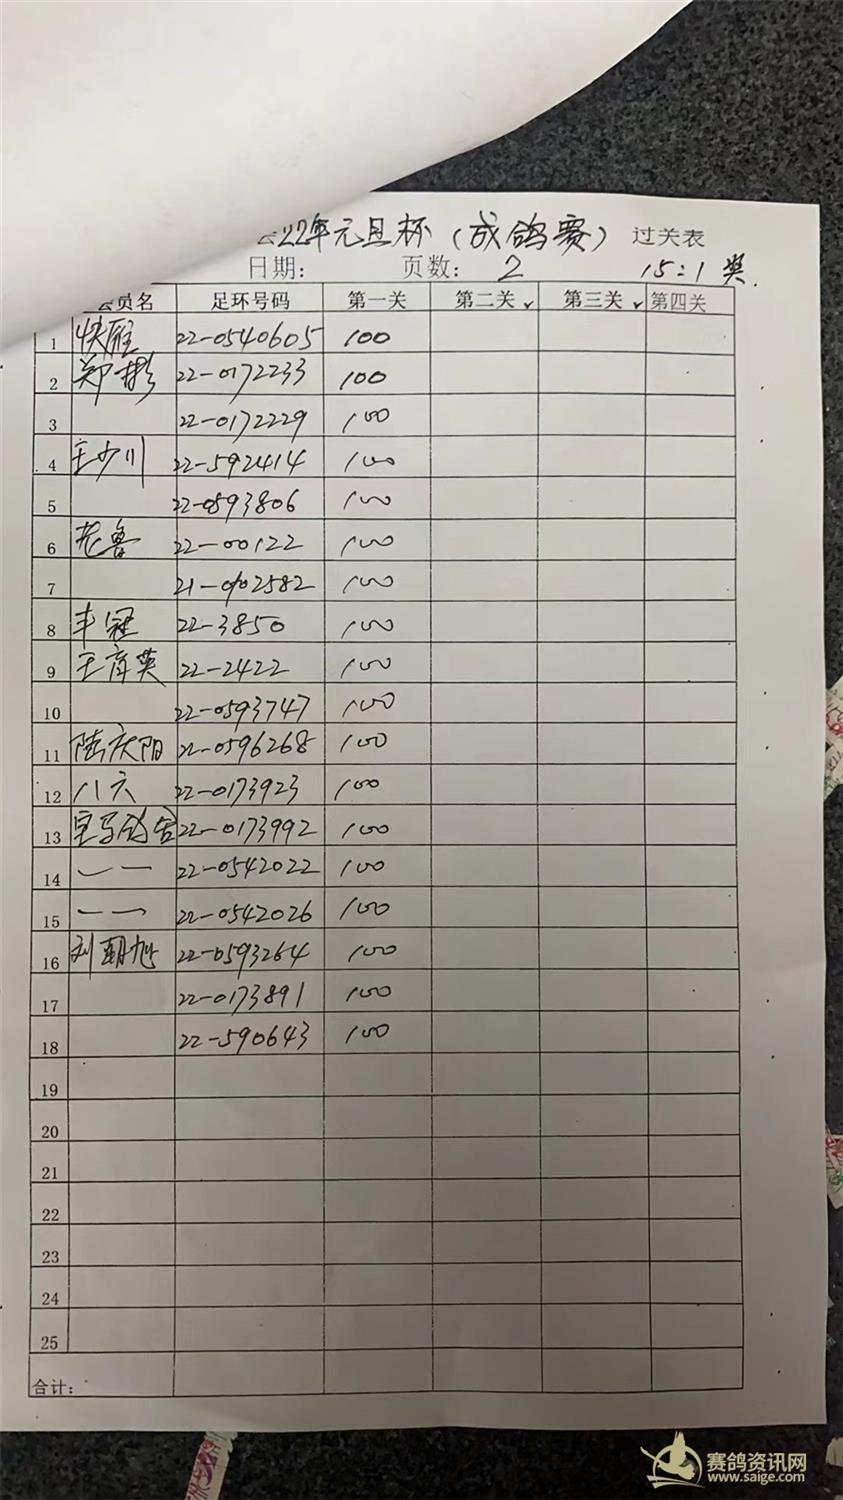 22年元旦杯（成鸽赛）过关表
日期： 页数：2 15:1奖.
会员名 足环号码 第一关 第二关 第三关 第四关
1 快雁 22-0540605 100
2 郑彬 22-0172233 100
3 22-0172229 100
4 王少川 22-592414 100
5 22-0593806 100
6 老鲁 22-00122 100
7 100
8 丰冠 22-3850 100
9 22-2422 100
10 22-0593747 100
11 陆庆阳 22-0596268 100
12 八六 22-0173923 100
13 宝马鸽舍 22-0173992 100
14 一一 22-0542022 100
15 一一 22-0542026 100
16 22-0593264 100
17 22-0173891 100
18 22-590643 100
19
20
21
22
23
24
25
合计：
赛鸽资讯网
www.saige.com